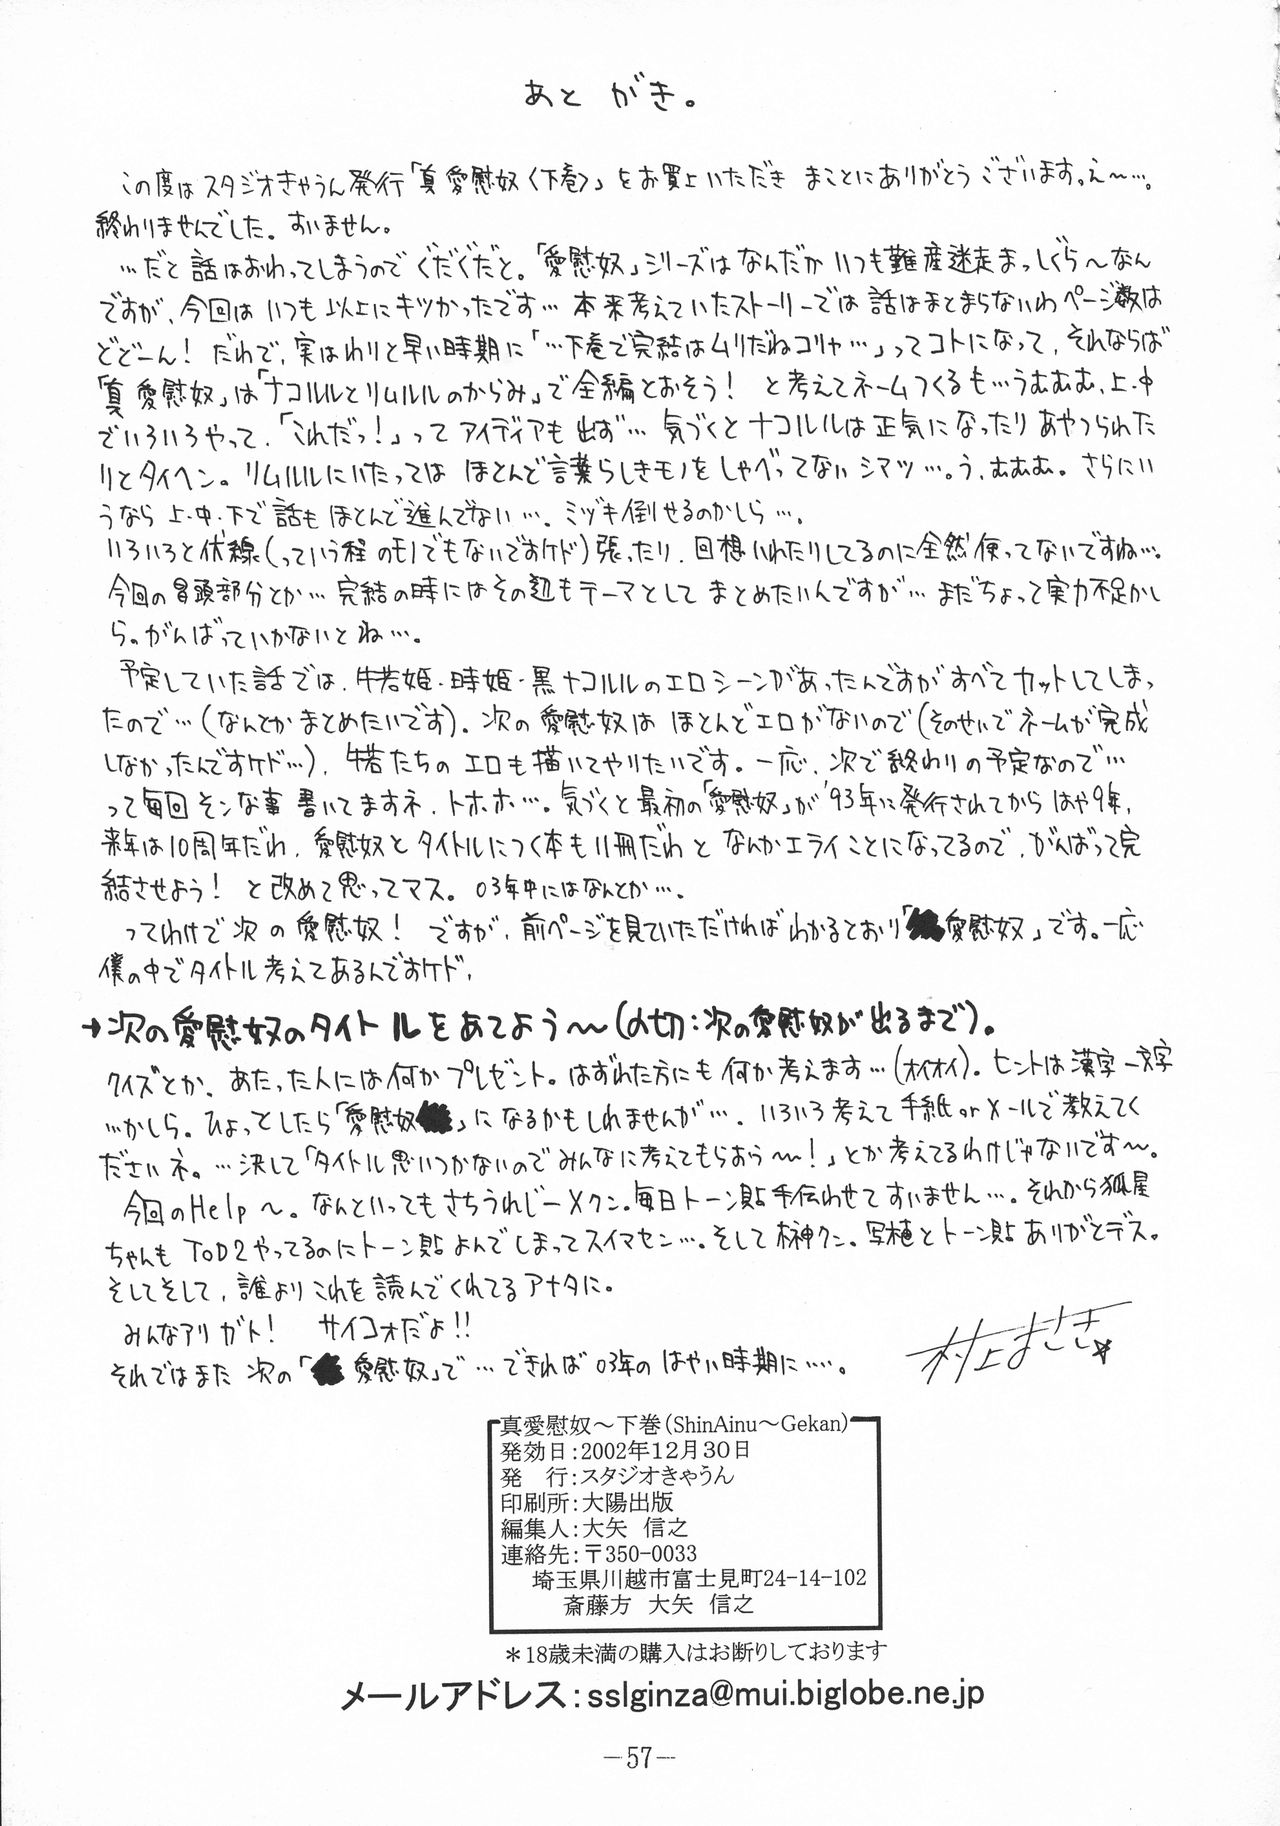 あとがき。
この度はスタジオきゃうん発行「真愛慰奴〈下巻〉」をお買上いただき まことにありがとうございます。え〜…。
終わりませんでした。すいません。
…だと話はおわってしまうのでぐだぐだと。「愛慰奴」シリーズはなんだかいつも難産迷走まっしぐら〜なん
ですが、今回はいつも以上にキツかったです…本来考えていたストーリーでは話はまとまらないわページ数は
どどーん！だわで、実はわりと早い時期に「…下巻で完結はムリだねコリャ…」ってコトになって、それならば
「真愛慰奴」は「ナコルルとリムルルのからみ」で全編とおそう！ と考えてネームつくるも…うむむむ、上・中
でいろいろやって、「これだっ！」ってアイディアも出ず…気づくとナコルルは正気になったりあやつられた
りとタイヘン。リムルルにいたってはほとんど言葉らしきモノをしゃべってないシマツ…。う、むむむ。さらにい
うなら上・中・下で話もほとんど進んでない…。ミヅキ倒せるのかしら…。
いろいろと伏線(っていう程のモノでもないですケド)張ったり、回想いれたりしてるのに全然使ってないですね…。
今回の冒頭部分とか…完結の時にはその辺もテーマとしてまとめたいんですが…まだちょって実力不足かし
ら。がんばっていかないとね…。
予定していた話では、牛若姫・時姫・黒ナコルルのエロシーンがあったんですがすべてカットしてしまっ
たので…(なんとかまとめたいです)。次の愛慰奴はほとんどエロがないので(そのせいでネームが完成
しなかったんですケド…)、牛若たちのエロも描いてやりたいです。一応、次で終わりの予定なので…
って毎回そンな事書いてますネ、トホホ…。気づくと最初の「愛慰奴」が'93年に発行されてからはや9年、
来年は10周年だわ、愛慰奴とタイトルにつく本も11冊だわとなんかエライことになってるので、がんばって完
結させよう！と改めて思ってマス。03年中にはなんとか…。
ってわけで次の愛慰奴！ ですが、前ページを見ていただければわかるとおり「愛慰奴」です。一応
僕の中でタイトル考えてあるんですケド、
→次の愛慰奴のタイトルをあてよう〜(〆切：次の愛慰奴が出るまで)。
クイズとか、あたった人には何かプレゼント。はずれた方にも何か考えます…(オイオイ)。ヒントは漢字一文字
…かしら。ひょっとしたら「愛慰奴」になるかもしれませんが…、いろいろ考えて手紙orメールで教えてく
ださいネ。…決して「タイトル思いつかないのでみんなに考えてもらおう〜！」とか考えてるわけじゃないです〜。
今回のHelp〜。なんといってもさちうれじーXクン。毎日トーン貼手伝わせてすいません…。それから狐星
ちゃんもTOD2やってるのにトーン貼よんでしまってスイマセン…。そして榊クン。写植とトーン貼ありがとデス。
そしてそして、誰よりこれを読んでくれてるアナタに。
みんなアリガト！ サイコォだよ！！
それではまた次の「愛慰奴」で…できれば03年のはやい時期に…。
村上まさき
真愛慰奴～下巻(ShinAinu～Gekan)
発効日：2002年12月30日
発　行：スタジオきゃうん
印刷所：大陽出版
編集人：大矢　信之
連絡先：〒350-0033
埼玉県川越市富士見町24-14-102
斎藤方　大矢　信之
＊18歳未満の購入はお断りしております
メールアドレス：sslginza@mui.biglobe.ne.jp
－57－